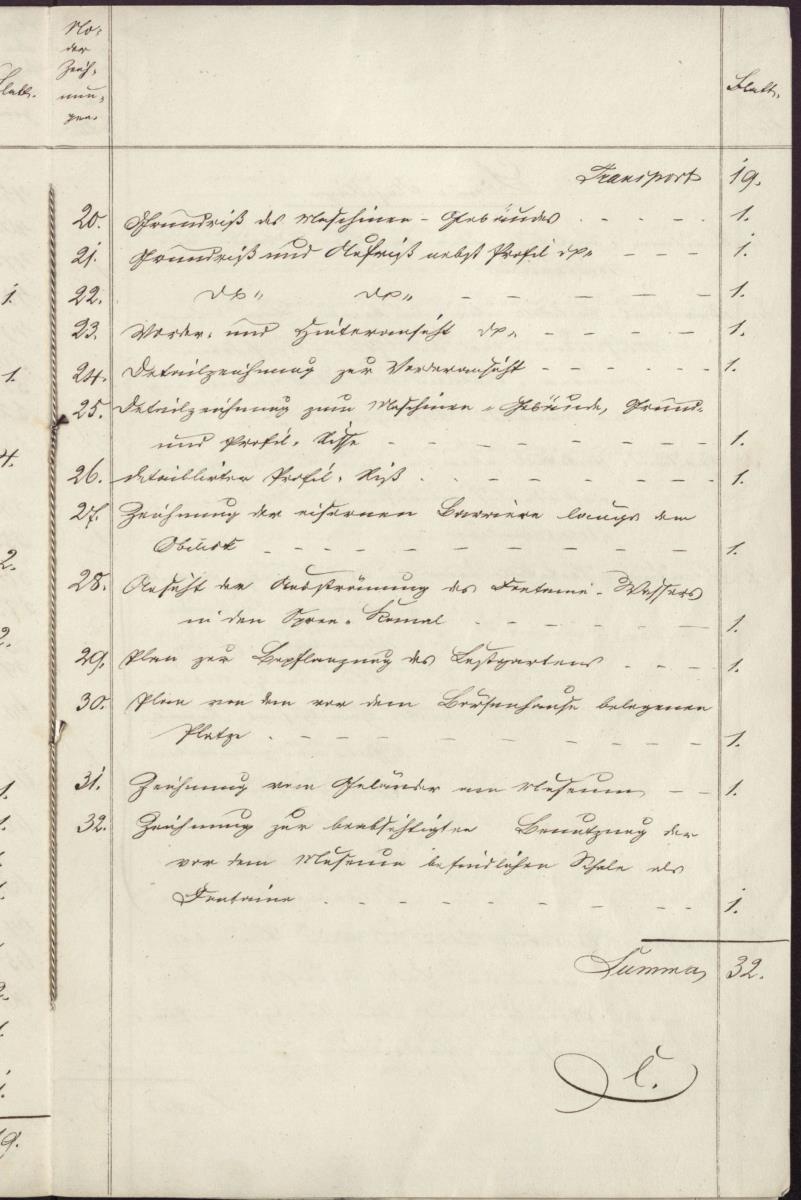 No:
der
Zeich-
nun-
gen.
Blatt.
Transport 19.
20. Grundriß des Maschinen-Gebäudes 1.
21. Grundriß und Aufriß nebst Profil do 1.
22. do do 1.
23. Vorder- und Hinteransicht do 1.
24. Detailzeichnung zur Vorderansicht 1.
25. Detailzeichnung zum Maschinen-Gebäude, Grund-
und Profil-Risse 1.
26. detaillirter Profil-Riß 1.
27. Zeichnung der eisernen Barriere längs dem
1.
28. Ansicht der Ausströmung des Fontainen-Wassers
in den Spree-Kanal 1.
29. Plan zur Bepflanzung des Lustgartens 1.
30. Plan von dem vor dem Börsenhause belegenen
Platze 1.
31. Zeichnung vom Geländer am Museum 1.
32. Zeichnung zur beabsichtigten Benutzung der
vor dem Museum befindlichen Schale als
Fontaine 1.
Summa 32.
Blatt.
1.
1.
4.
2.
2.
1.
1.
1.
1.
2.
1.
1.
19.